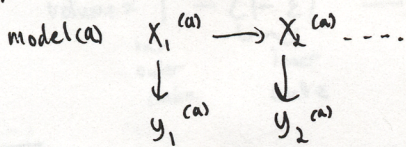 model(a) X₁⁽ᵃ⁾ → X₂⁽ᵃ⁾ ....
y₁⁽ᵃ⁾ y₂⁽ᵃ⁾